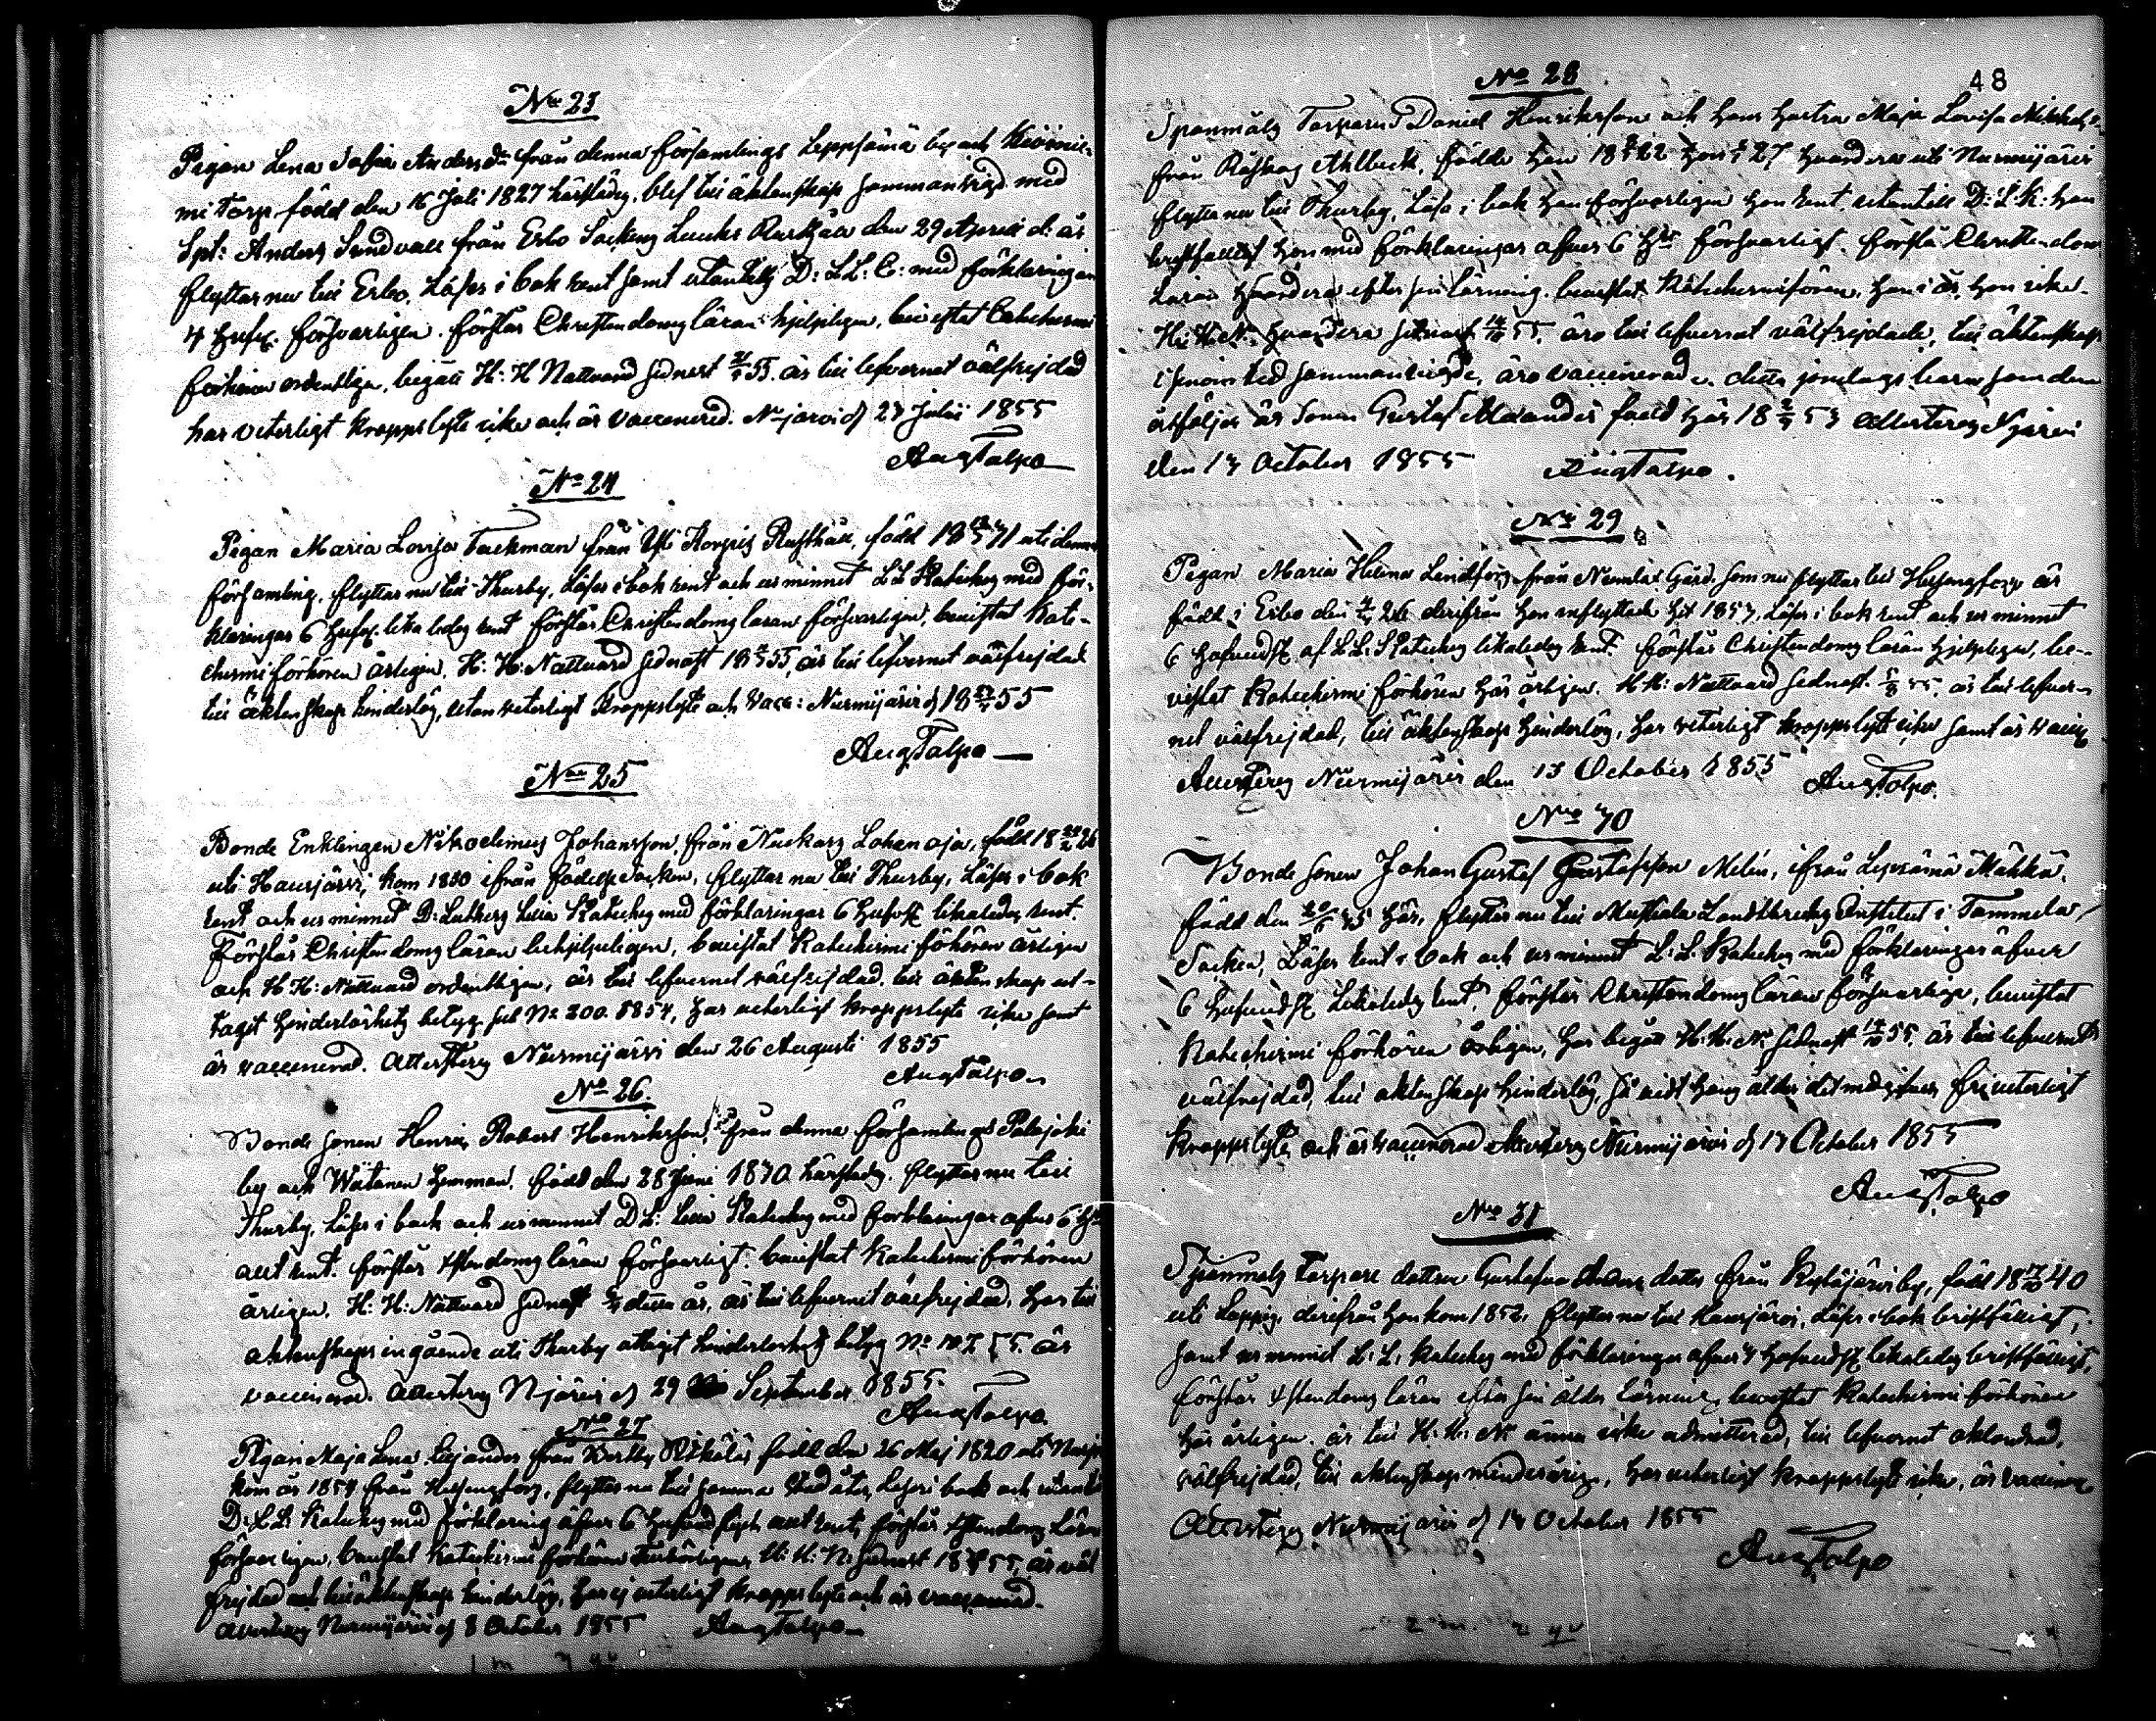 No 23
Pigan Lena Sofia Andersdr från denna församlings Leppsämä by och Kiömie-
mi Torp född den 16 Juli 1827 härstädes, blef till äktenskap sammanvigd med
Spl: Anders Sundvall från Esbo Sockens Luuks Rusthåll den 29 April d: år
flyttar nu till Esbo. Läser i bok rent samt utantill D: L.L: C: med förklaringen
4 hufst. försvarligen. förstår Christendoms läran hjelpligen, bevistat Catechismi
förhören ordentligen, begått H: H Nattvard sednast 55. är till lefvernet välfrejdad
har veterligt kropps lyte icke och är vaccinerad. Njärvi d 23 Julii 1855
Aug Talpo
No 24
Pigan Maria Lovisa Tackman från Rusthåll, född 18 31 uti denna
församling, flyttar nu till Thusby, Läser i bok rent och ur minnet L L Kateches med för-
klaringar 6 hufst. lika ledes rent förstår Christendoms läran försvarligen, bevistat Kate-
chismi förhören årligen, H: H: Nattvard sednast 18 55, är till lefvernet välfrejdad
till äktenskap hinderlös, utan veterligt kroppslyte och Vacc: Nurmijärvi d 18 55
Aug Talpo
No 25
Bonde Enklingen Nikodemus Johansson från Nuckars Lahen oja, född 18 26
uti Hausjärvi, kom 1830 ifrån födelse socken, flyttar nu till Thusby, Läser i bok
rent och ur minnet D: Luthers Lilla Kateches med förklaringar 6 hufst likaledes rent.
Förstår Christendoms läran behjelpeligen, bevistat Katechismi förhören årligen
och H H: Nattvard ordentligen, är till lefvernet välfrejdad. till äktenskap ut-
taget hinderlöshets betyg sub No 200. 1854, har veterligt kroppslyte icke samt
är vaccinerad. Attesteras Nurmijärvi den 26 Augusti 1855
Aug Talpo
No 26.
Bonde sonen Henric Robert Henriksson, från denna församlings Palojoki
by och Wätänen hemman, född den 28 Juni 1830 härstädes. flyttar nu till
Thusby, Läser i bock och ur minnet D L: Lilla Kateches med förklaringar öfver 6 hst
allt rent. förstår xstendoms läran försvarligt. bevistat Katechismi förhören
årligen. H: H: Nattvard sednast detta år, är till lefvernet välfrejdad. har till
äktenskaps ingående uti Thusby uttagit hinderlöshets betyg No 55 är
vaccinerad. Attesteras Njärvi d 29 September 1855.
Aug Talpo
No 27
Pigan Maja Lena Lejander från född den 26 Maj 1820 uti
kom år 1854 från Helsingfors, flyttar nu till samma stad åter, Läser i bock och utantill
D: L L: Kateches med förklaring öfver 6 hufvudstyck allt rent, förstår xstendoms läran
försvarligen, bevistat Katechismi förhören H: H: N: sednast 18 55, är väl
frejdad och till äktenskap hinderlös, har ej veterligt kropps lyte och är vaccinerad.
Attesteras Nurmijärvi d 8 October 1855 Aug Talpo
No 28
48
Spanmåls Torparen Daniel Henriksson och hans hustru Maja Lovisa
från Röskog Ahlbeck, födde han 18 22 hon 27 hvardera uti Nurmijärvi
flytta nu till Thusby, Läsa i bok han försvarligen hon rent, utantill D: L: K: han
bristfälligt hon med förklaringar öfver 6 hst försvarligt. förstå Christendoms
läran hvardera efter sin lärning. bevistat Katechismiförhören, han i år, hon icke.
H: H: N: hvardera sednast 55. äro till lefvernet välfrejdade, till äktenskap
sammanvigde, äro vaccinerade. detta barn som dem
åtföljer är sonen Gustaf född här 18 53 Attesteras Njärvi
den 13 October 1855 Aug Talpo.
No 29
Pigan Maria Helena Lindfors från Numlax Gård, som nu flyttar till Helsingfors är
född i Esbo den 26 derifrån hon inflyttade hit 1853, Läser i bok rent och ur minnet
6 hufvudst af L L: Kateches likaledes rent. förstår Christendoms läran hjelpligen, be-
vistat Katechismi förhören här årligen. H H: Nattvard sednast 55, är till lefver-
net välfrejdad, till äktenskap hinderlös, har veterligt kroppslyte icke samt är vacc
Attesteras Nurmijärvi den 13 October 1855 Aug Talpo.
No 30
Bonde sonen Johan Gustaf Gustafsson Melin, ifrån Lepsämä Mäkkä.
född den 35 här, flyttar nu till Mustiala Landtbruks Institut i Tammela
Socken, Läser rent i bok och ur minnet L: L. Kateches med förklaringar öfver
6 hufvudst Likaledes rent. förstår Christendoms läran försvarligen, bevistat
Katechismi förhören årligen, har begått H: H: N: sednast 55. är till lefvernet
välfrejdad, till äktenskap hinderlös, så vidt hans ålder det medgifver, fri veterligt
kroppslyte, och är vaccinerad Attesteras Nurmijärvi d 13 October 1855
Aug Talpo
No 31
Spanmåls Torpare dottren Gustafva dotter från Rajajärvi by, född 18 40
uti Loppis, derifrån hon kom 1852, flyttar nu till Hausjärvi, Läser i bok bristfälligt,
samt ur minnet L: L: Kateches med förklaringar öfver 4 hufvudst likaledes bristfälligt,
förstår xstendoms läran efter sin ålder bevistat Katechismi förhören
här årligen. är till H: H: N: ännu icke admitterad, till lefvernet oklandrad,
välfrejdad, till äktenskap minderårig, har veterligt kroppslyte icke, är vaccinerad
Attesteras Nurmijärvi d 14 October 1855
Aug Talpo